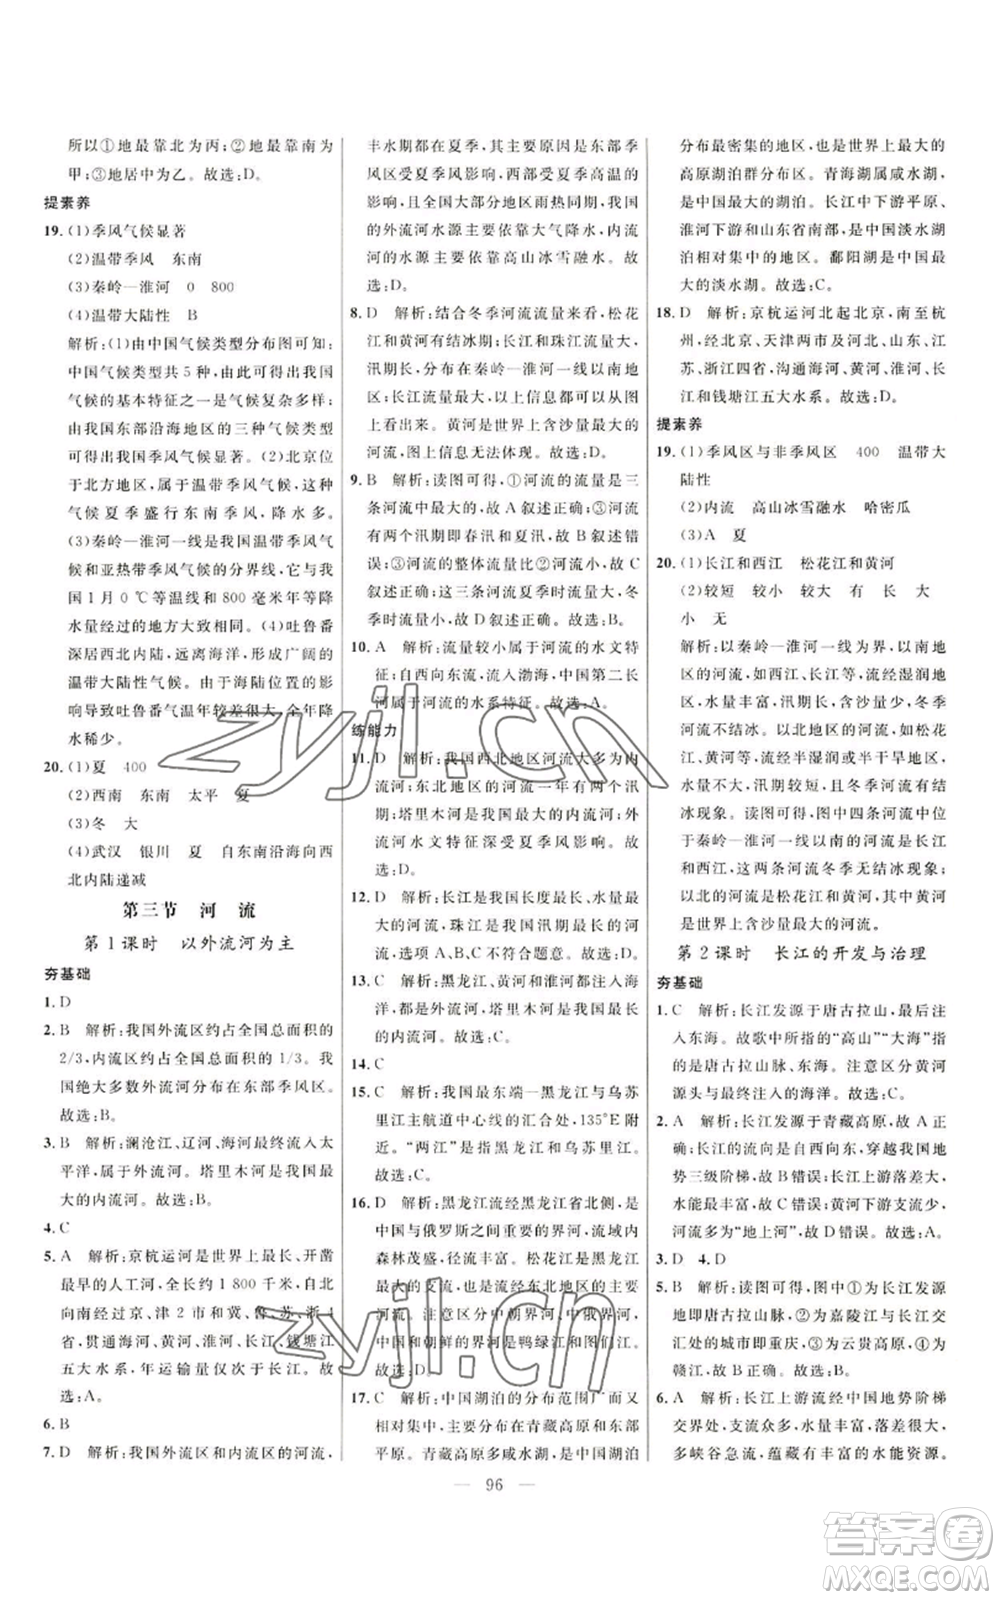 所以①地最靠北为丙;②地最靠南为
甲;③地居中为乙。故选:D。
提素养
19. (1)季风气候显著
(2)温带季风 东南
(3)秦岭—淮河 0 800
(4)温带大陆性 B
解析:(1)由中国气候类型分布图可知:
中国气候类型共5种,由此可得出我国
气候的基本特征之一是气候复杂多样;
由我国东部沿海地区的三种气候类型
可得出我国季风气候显著。(2)北京位
于北方地区,属于温带季风气候,北方
地区夏季盛行东南季风,降水多。
(3)秦岭—淮河一线是我国温带季风气
候和亚热带季风气候的分界线,它与我
国1月0℃等温线和800毫米年等降
水量经过的地方大致相同。(4)吐鲁番
深居西北内陆,远离海洋,形成广阔的
温带大陆性气候。由于海陆位置的影
响导致吐鲁番气温年较差很大,全年降
水稀少。
20. (1)夏 400
(2)西南 东南 太平 夏
(3)冬 大
(4)武汉 银川 夏 自东南沿海向西
北内陆递减
第三节 河 流
第1课时 以外流河为主
夯基础
1. D
2. B 解析:我国外流区约占全国总面积的
2/3,内流区约占全国总面积的1/3。我
国绝大多数外流河分布在东部季风区。
故选:B。
3. B 解析:澜沧江、辽河、海河最终流入太
平洋,属于外流河。塔里木河是我国最
大的内流河。故选:B。
4. C
5. A 解析:京杭运河是世界上最长、开凿
最早的人工河,全长约1 800千米,自北
向南经过京、津2市和冀、鲁、苏、浙4
省,贯通海河、黄河、淮河、长江、钱塘江
五大水系,年运输量仅次于长江。故
选:A。
6. B
7. D 解析:我国外流区和内流区的河流,
丰水期都在夏季,其主要原因是东部季
风区受夏季风影响,西部受夏季高温的
影响,且全国大部分地区雨热同期,我国
的外流河水源主要依靠大气降水,内流
河的水源主要依靠高山冰雪融水。故
选:D。
8. D 解析:结合冬季河流流量来看,松花
江和黄河有结冰期;长江和珠江流量大、
汛期长,分布在秦岭—淮河一线以南地
区;长江流量最大,以上信息可以从图上
看出来。黄河是世界上含沙量最大的
河流,图上信息无法体现。故选:D。
9. B 解析:读图可得,①河流的流量是三
条河流中最大的,故A叙述正确;③河流
有两个汛期即春汛和夏汛,故B叙述错
误;③河流的流量比②河流小,故C
叙述正确;这三条河流夏季时流量大,冬
季时流量小,故D叙述正确。故选:B。
10. A 解析:流量较小属于河流的水文特
征;自西向东流,流入渤海,中国第二长
河属于河流的水系特征。故选:A。
练能力
11. D 解析:我国西北地区河流大多为内
流河;东北地区的河流一年有两个汛
期;塔里木河为我国最大的内流河;外
流河水文特征深受夏季风影响。故
选:D。
12. D 解析:长江是我国长度最长、水量最
大的河流,珠江是我国汛期最长的河
流,故A、B、C不符合题意。故选:D。
13. C 解析:黑龙江、黄河和淮河都注入海
洋,是外流河;塔里木河是我国最长
的内流河。故选:C。
14. C
15. C 解析:我国最东端—黑龙江与乌苏
里江主航道中心线的汇合处,135°E附
近。“两江”是指黑龙江和乌苏里江。
故选:C。
16. D 解析:黑龙江流经黑龙江省北侧,是
中国与俄罗斯之间重要的界河,流域内
森林茂盛,径流丰富。松花江是黑龙江
最大的支流,也是流经东北地区的主要
河流。注意区分中朝界河、中俄界河,
中国和朝鲜的界河是鸭绿江和图们江。
故选:D。
17. C 解析:中国湖泊的分布范围广而又
相对集中,主要分布在青藏高原和东部
平原。青藏高原多咸水湖,是中国湖泊
分布最密集的地区,也是世界上最大的
高原湖泊群分布区。青海湖属咸水湖,
是中国最大的湖泊。长江中下游平原、
淮河下游和山东省南部,是中国淡水湖
泊相对集中的地区。鄱阳湖是中国最
大的淡水湖。故选:C。
18. D 解析:京杭运河北起北京,南至杭
州,经北京、天津两市及河北、山东、江
苏、浙江四省,沟通海河、黄河、淮河、长
江和钱塘江五大水系。故选:D。
提素养
19. (1)季风区与非季风区 400 温带大
陆性
(2)内流 高山冰雪融水 哈密瓜
(3)A 夏
20. (1)长江和西江 松花江和黄河
(2)较短 较小 有 长 大
小 无
解析:以秦岭—淮河一线为界,以南地
区的河流,主要流经湿润地区,且雨季
开始早结束晚,雨季长,降水丰富,故河
流水量丰富,汛期长,含沙量较小,冬季
河流没有结冰现象。秦岭—淮河以北
的河流,流经半湿润与湿润地区,降水
较少,汛期较短,含沙量大,冬季河流有
结冰现象。读图可得,图中四条河流中
位于秦岭—淮河一线以南的河流是长
江和西江,这两条河流冬季无结冰现象;
以北的是松花江和黄河,其中黄河是世
界上含沙量最大的河流。
第2课时 长江的开发与治理
夯基础
1. C 解析:长江发源于唐古拉山,最终注
入东海。故歌中所指的“高山”“大海”指
的是唐古拉山脉、东海。注意区分黄河
源头与最终注入的海洋。故选:C。
2. A 解析:长江发源于青藏高原,故A正
确;长江的流向是自西向东,穿越我国地
势三级阶梯,故B错误;长江上游落差大,
水能最大,故C错误;黄河下游支流少,
河流多为“地上河”,故D错误。故选:A。
3. D 4. D
5. B 解析:读图可得,图中①为长江发源
地即唐古拉山脉,②为嘉陵江与长江交
汇处的城市即重庆,③为云贵高原,④为
赣江,故B正确。故选:B。
6. A 解析:长江上游流经中国地势阶梯
交界处,支流众多,水量丰富,落差大,
多峡谷急流,蕴藏有丰富的水能资源。
— 96 —
zyjl.cn
zyjl.cn
答案圈
MXQE.COM